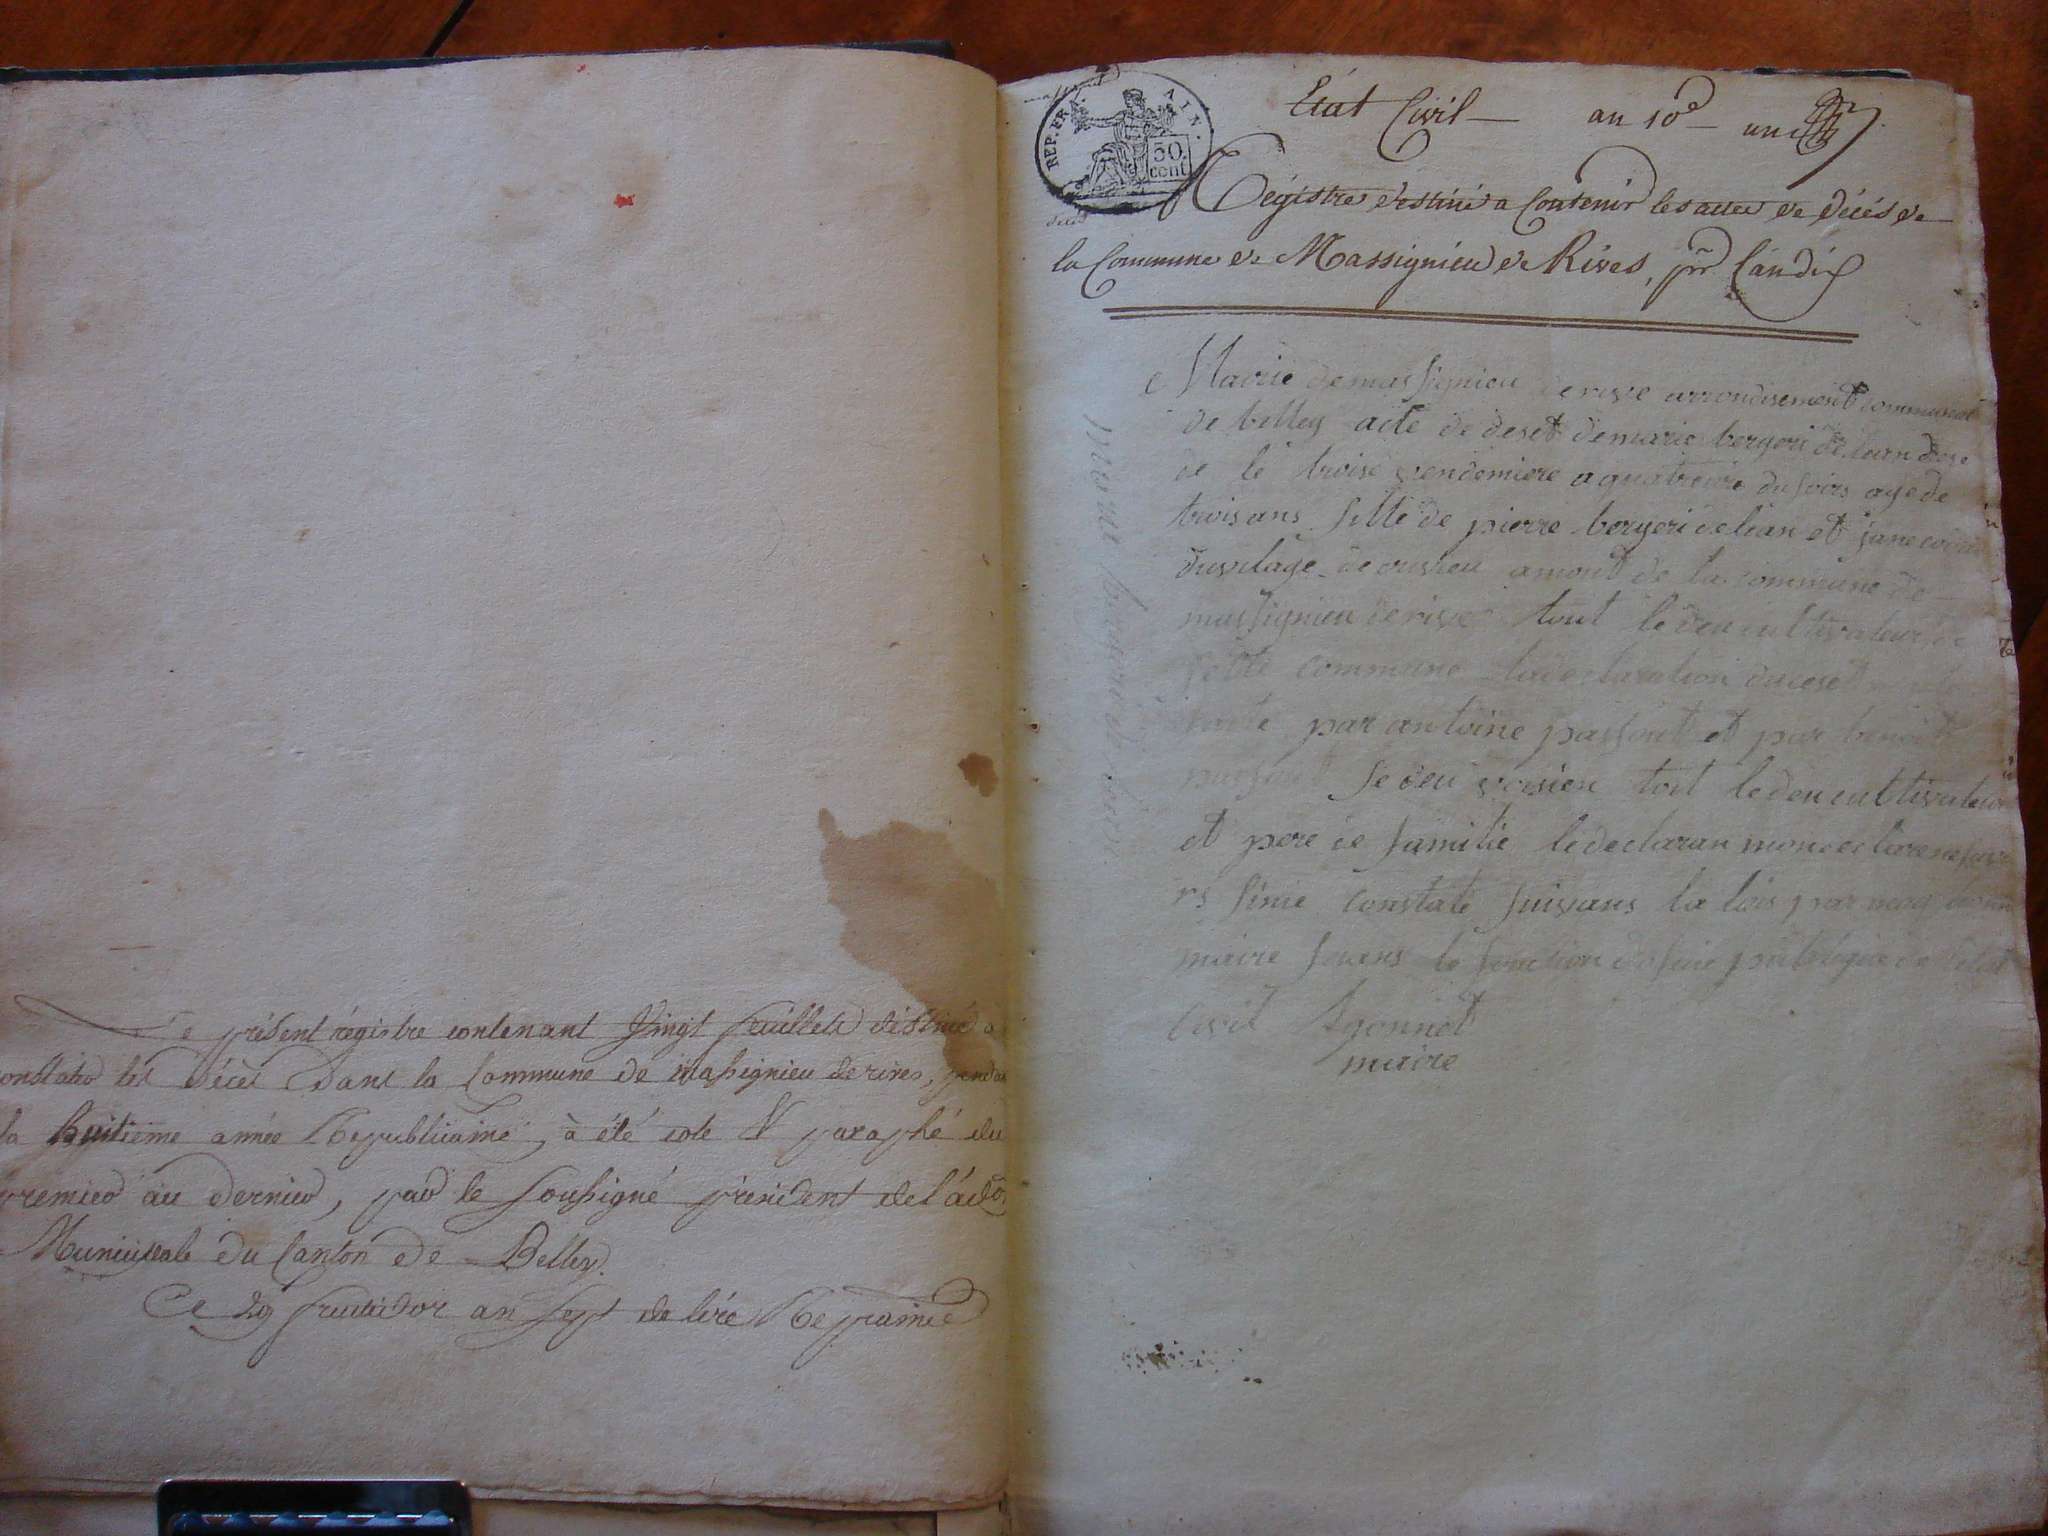 Le présent régistre contenant Vingt feuillets destiné a
constater les Décès Dans la Commune de massignieu de rives, pendant
la huitieme année Republicaine, à été coté & paraphé du
premier au dernier, par le soussigné président de l'ad.on
Municipale du Canton de Belley.
Ce 29 fructidor an Sept de l'ère
massignieu
REP. FRA. AIN.
50.
cent
décès
Etat Civil — au 10e — un
Régistre destiné a Contenir les actes de décès de
la Commune de Massignieu de Rives, pr. l'an dix
marie bergeri de lian
Mairie de massignieu de rive arrondisement communal
de belley acte de deset de marie bergeri de lian
de le trois vendemiere a quatre du soirs age de
trois ans fille de pierre bergeri de lian et jane
du vilage de amont de la commune de
massignieu de rive tout le deu cultivateur de
sette commune la declaration du deset
par antoine passout et par benoit
passout se deu tout le deu cultivateur
et pere de familie le declaran mon declare
sinie constate suivans la lois par moy
maire la fonction de l'etat
civil Agonnet
maire